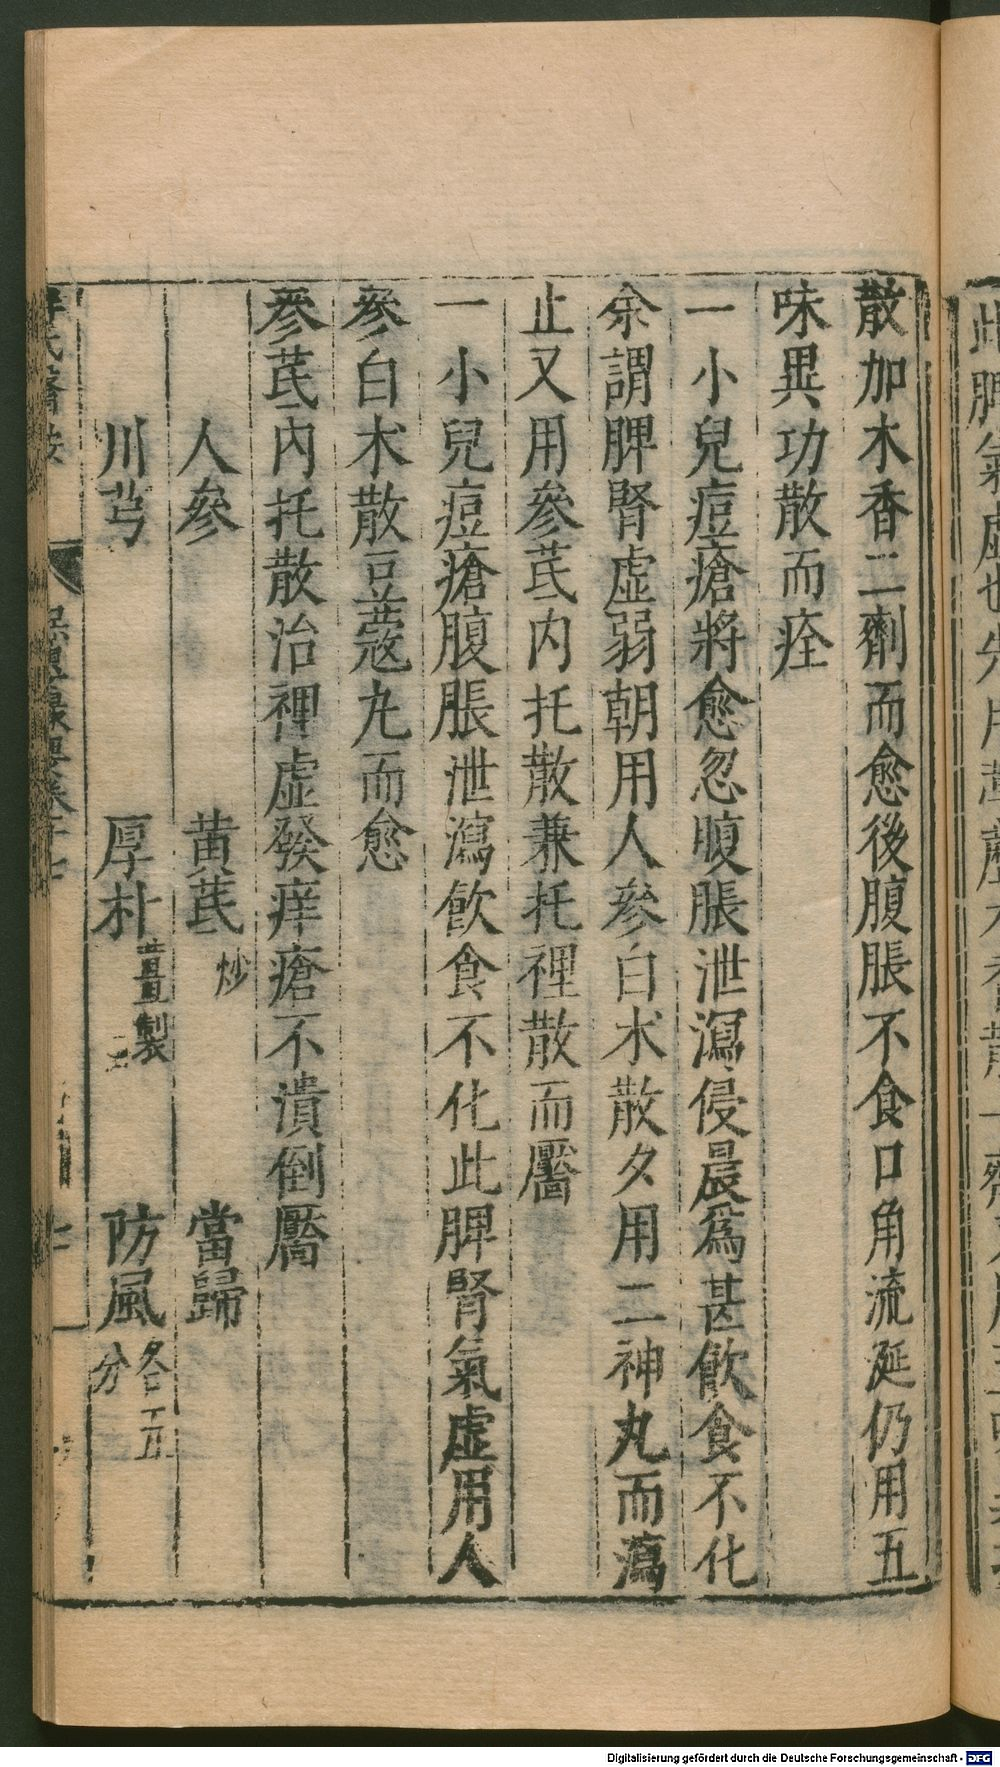 散加木香二劑而愈後腹脹不食口角流涎仍用五
味異功散而痊
一小兒痘瘡將愈忽腹脹泄瀉侵晨爲甚飮食不化
余謂脾腎虛弱朝用人參白朮散夕用二神丸而瀉
止又用參芪内托散兼托裡散而靨
一小兒痘瘡腹脹泄瀉飮食不化此脾腎氣虛用人
參白朮散豆蔻丸而愈
參芪内托散治裡虛發痒瘡不潰倒靨
人參 黃芪炒 當歸
川芎 厚朴薑製 防風各五分
Digitalisierung gefördert durch die Deutsche Forschungsgemeinschaft - DFG